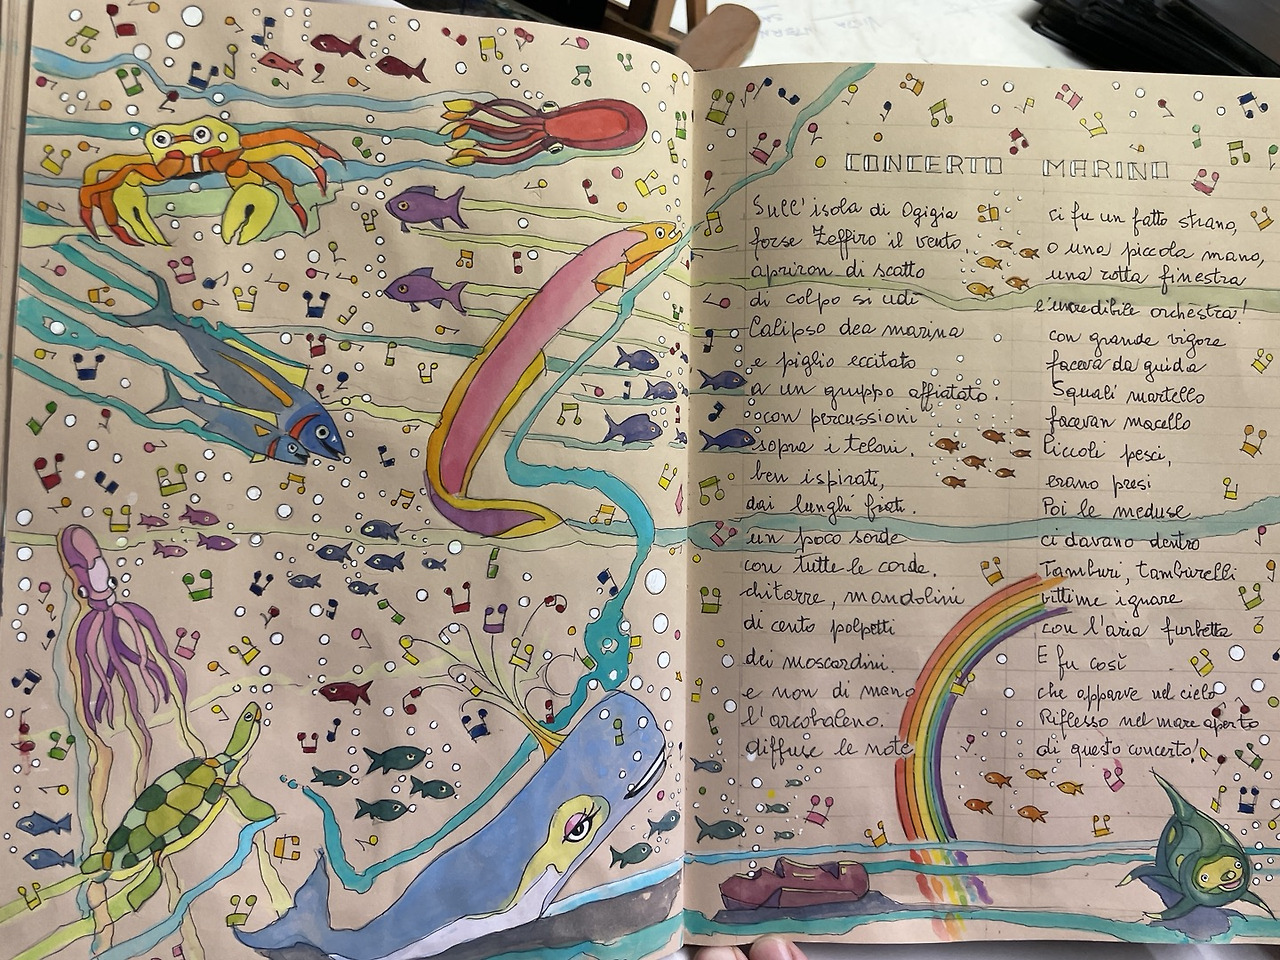 CONCERTO MARINO
Sull'isola di Ogigia ci fu un fatto strano,
forse Zeffiro il vento, o una piccola mano,
apriron di scatto una rotta finestra
di colpo si udì l'incredibile orchestra!
Calipso dea marina con grande vigore
e piglio eccitato faceva da guida
a un gruppo affiatato. Squali martello
con percussioni facevan macello
sopra i teloni. Piccoli pesci,
ben ispirati, erano presi
dai lunghi fiati. Poi le meduse
un poco sorde ci davano dentro
con tutte le corde. Tamburi, tamburelli
chitarre, mandolini vittime ignare
di cento polpetti con l'aria furbetta
dei moscardini. E fu così
e non di mano che apparve nel cielo
l'arcobaleno. Riflesso nel mare aperto
diffuse le note di questo concerto!